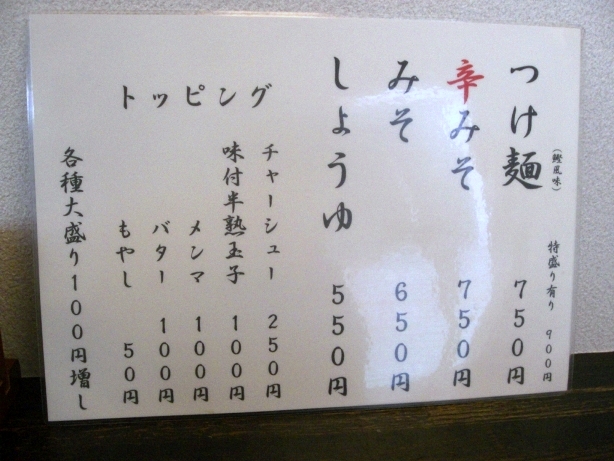 つけ麺 750円
(鰹風味) 特盛り有り 900円
辛みそ 750円
みそ 650円
しょうゆ 550円
トッピング
チャーシュー 250円
味付半熟玉子 100円
メンマ 100円
バター 100円
もやし 50円
各種大盛り100円増し